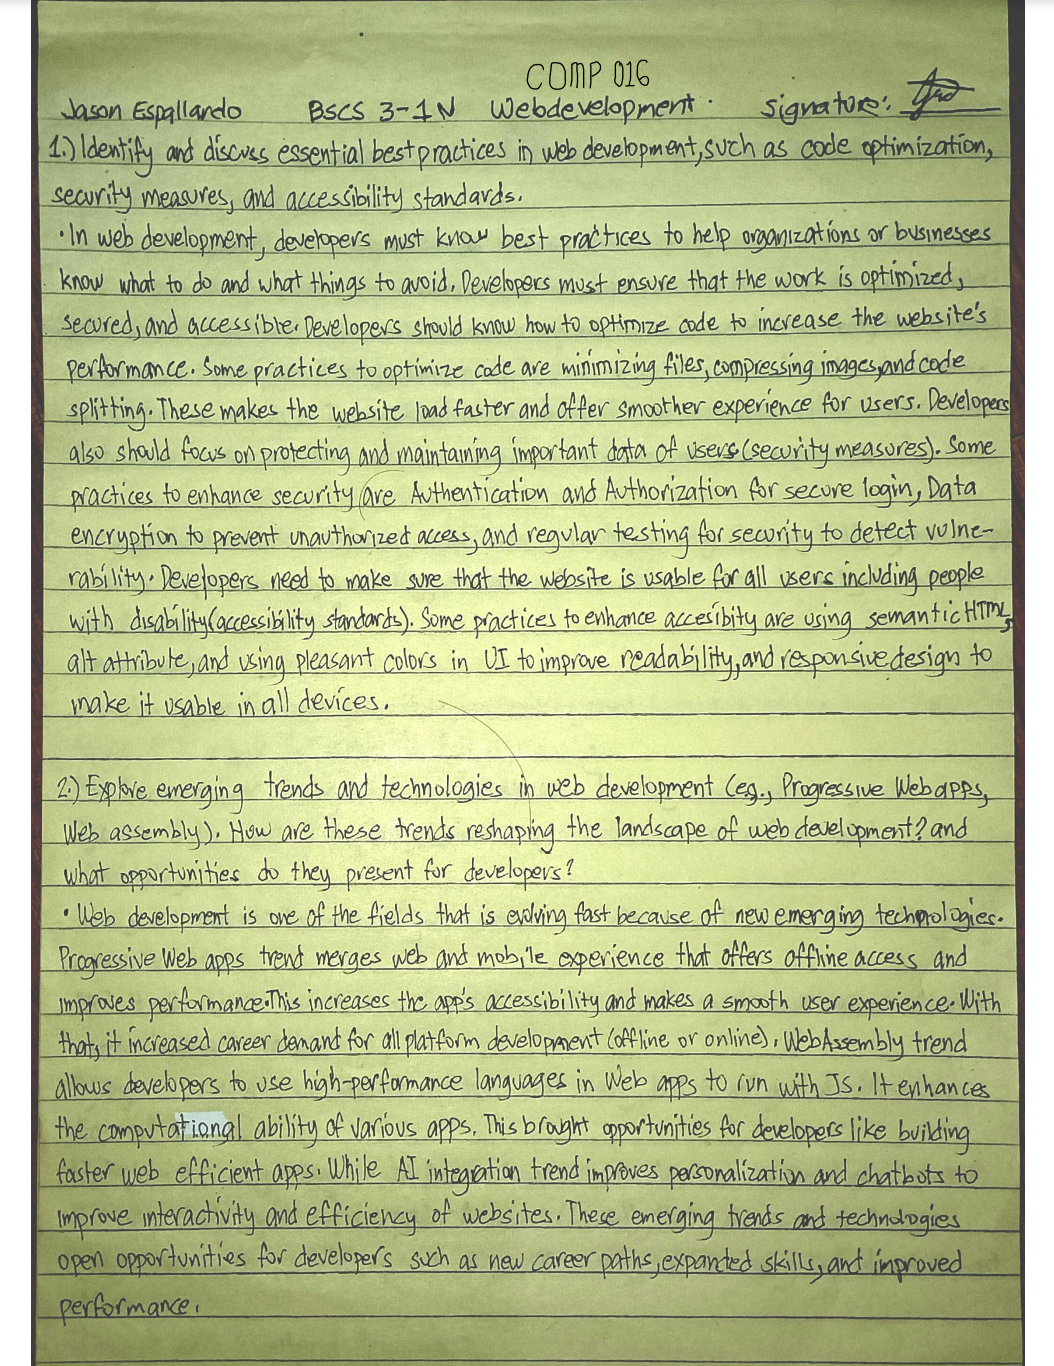 COMP 016
Jason Espallando BSCS 3-1N Webdevelopment. signature:
1.) Identify and discuss essential best practices in web development, such as code optimization,
security measures, and accessibility standards.
• In web development, developers must know best practices to help organizations or businesses
know what to do and what things to avoid. Developers must ensure that the work is optimized,
secured, and accessible. Developers should know how to optimize code to increase the website's
performance. Some practices to optimize code are minimizing files, compressing images, and code
splitting. These makes the website load faster and offer smoother experience for users. Developers
also should focus on protecting and maintaining important data of users (security measures). Some
practices to enhance security are Authentication and Authorization for secure login, Data
encryption to prevent unauthorized access, and regular testing for security to detect vulne-
rability. Developers need to make sure that the website is usable for all users including people
with disability (accessibility standards). Some practices to enhance accesibity are using semantic HTML,
alt attribute, and using pleasant colors in UI to improve readability, and responsive design to
make it usable in all devices.
2.) Explore emerging trends and technologies in web development (eg., Progressive Web apps,
Web assembly). How are these trends reshaping the landscape of web development? and
what opportunities do they present for developers?
• Web development is one of the fields that is evolving fast because of new emerging technologies.
Progressive Web apps trend merges web and mobile experience that offers offline access and
improves performance. This increases the app's accessibility and makes a smooth user experience. With
that, it increased career demand for all platform development (offline or online). WebAssembly trend
allows developers to use high-performance languages in Web apps to run with Js. It enhances
the computational ability of various apps. This brought opportunities for developers like building
faster web efficient apps. While AI integration trend improves personalization and chatbots to
improve interactivity and efficiency of websites. These emerging trends and technologies
open opportunities for developers such as new career paths, expanded skills, and improved
performance.